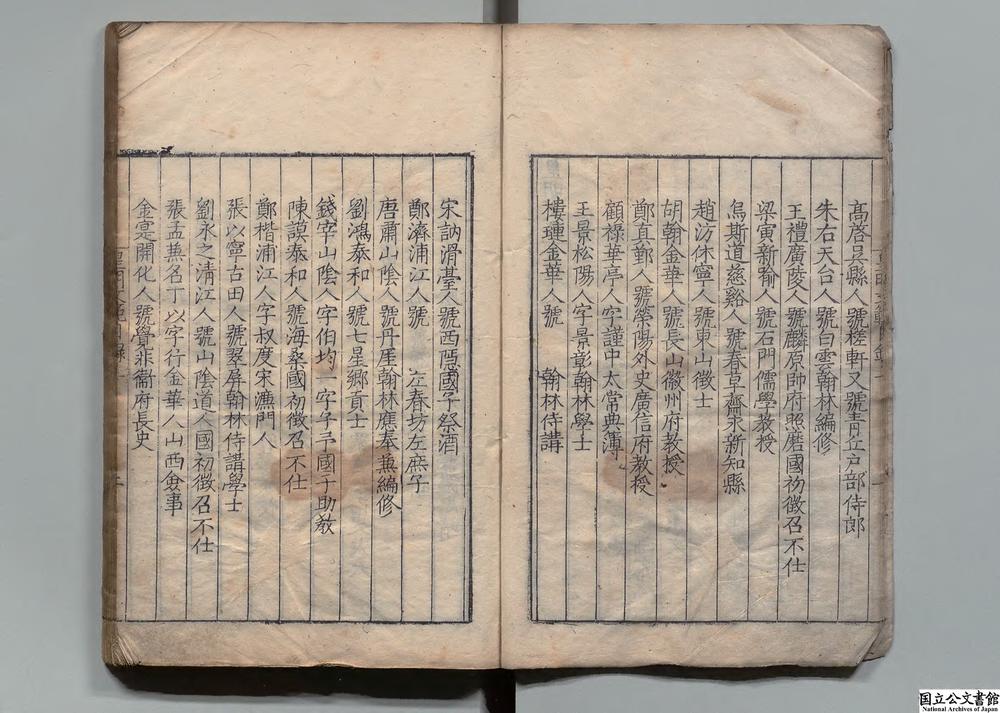 高啓吳縣人號槎軒又號青丘戶部侍郎
朱右天台人號白雲翰林編修
王禮廣陵人號麟原帥府照磨國初徵召不仕
梁寅新喻人號石門儒學教授
烏斯道慈谿人號春草齋永新知縣
趙汸休寧人號東山徵士
胡翰金華人號長山徽州府教授
鄭真鄞人號滎陽外史廣信府教授
顧祿華亭人字謹中太常典簿
王景松陽人字景彰翰林學士
樓璉金華人號 翰林侍講
宋訥滑臺人號西隱國子祭酒
鄭濟浦江人號 左春坊左庶子
唐肅山陰人號丹崖翰林應奉兼編修
劉鴻泰和人號七星鄉貢士
錢宰山陰人字伯均一字子予國子助教
陳謨泰和人號海桑國初徵召不仕
鄭楷浦江人字叔度宋濂門人
張以寧古田人號翠屏翰林侍講學士
劉永之清江人號山陰道人國初徵召不仕
張孟兼名丁以字行金華人山西僉事
金寔開化人號覺非衞府長史
国立公文書館
National Archives of Japan